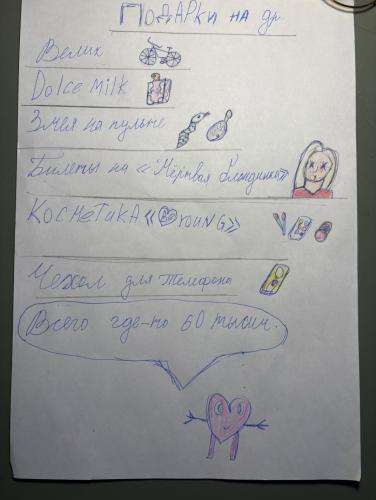 Подарки на др
Велик
Dolce milk
Змея на пульте
Билеты на «Мёртвая блондинка»
Косметика « Be YOUNG»
Чехол для телефона
Всего где-то 60 тысяч.